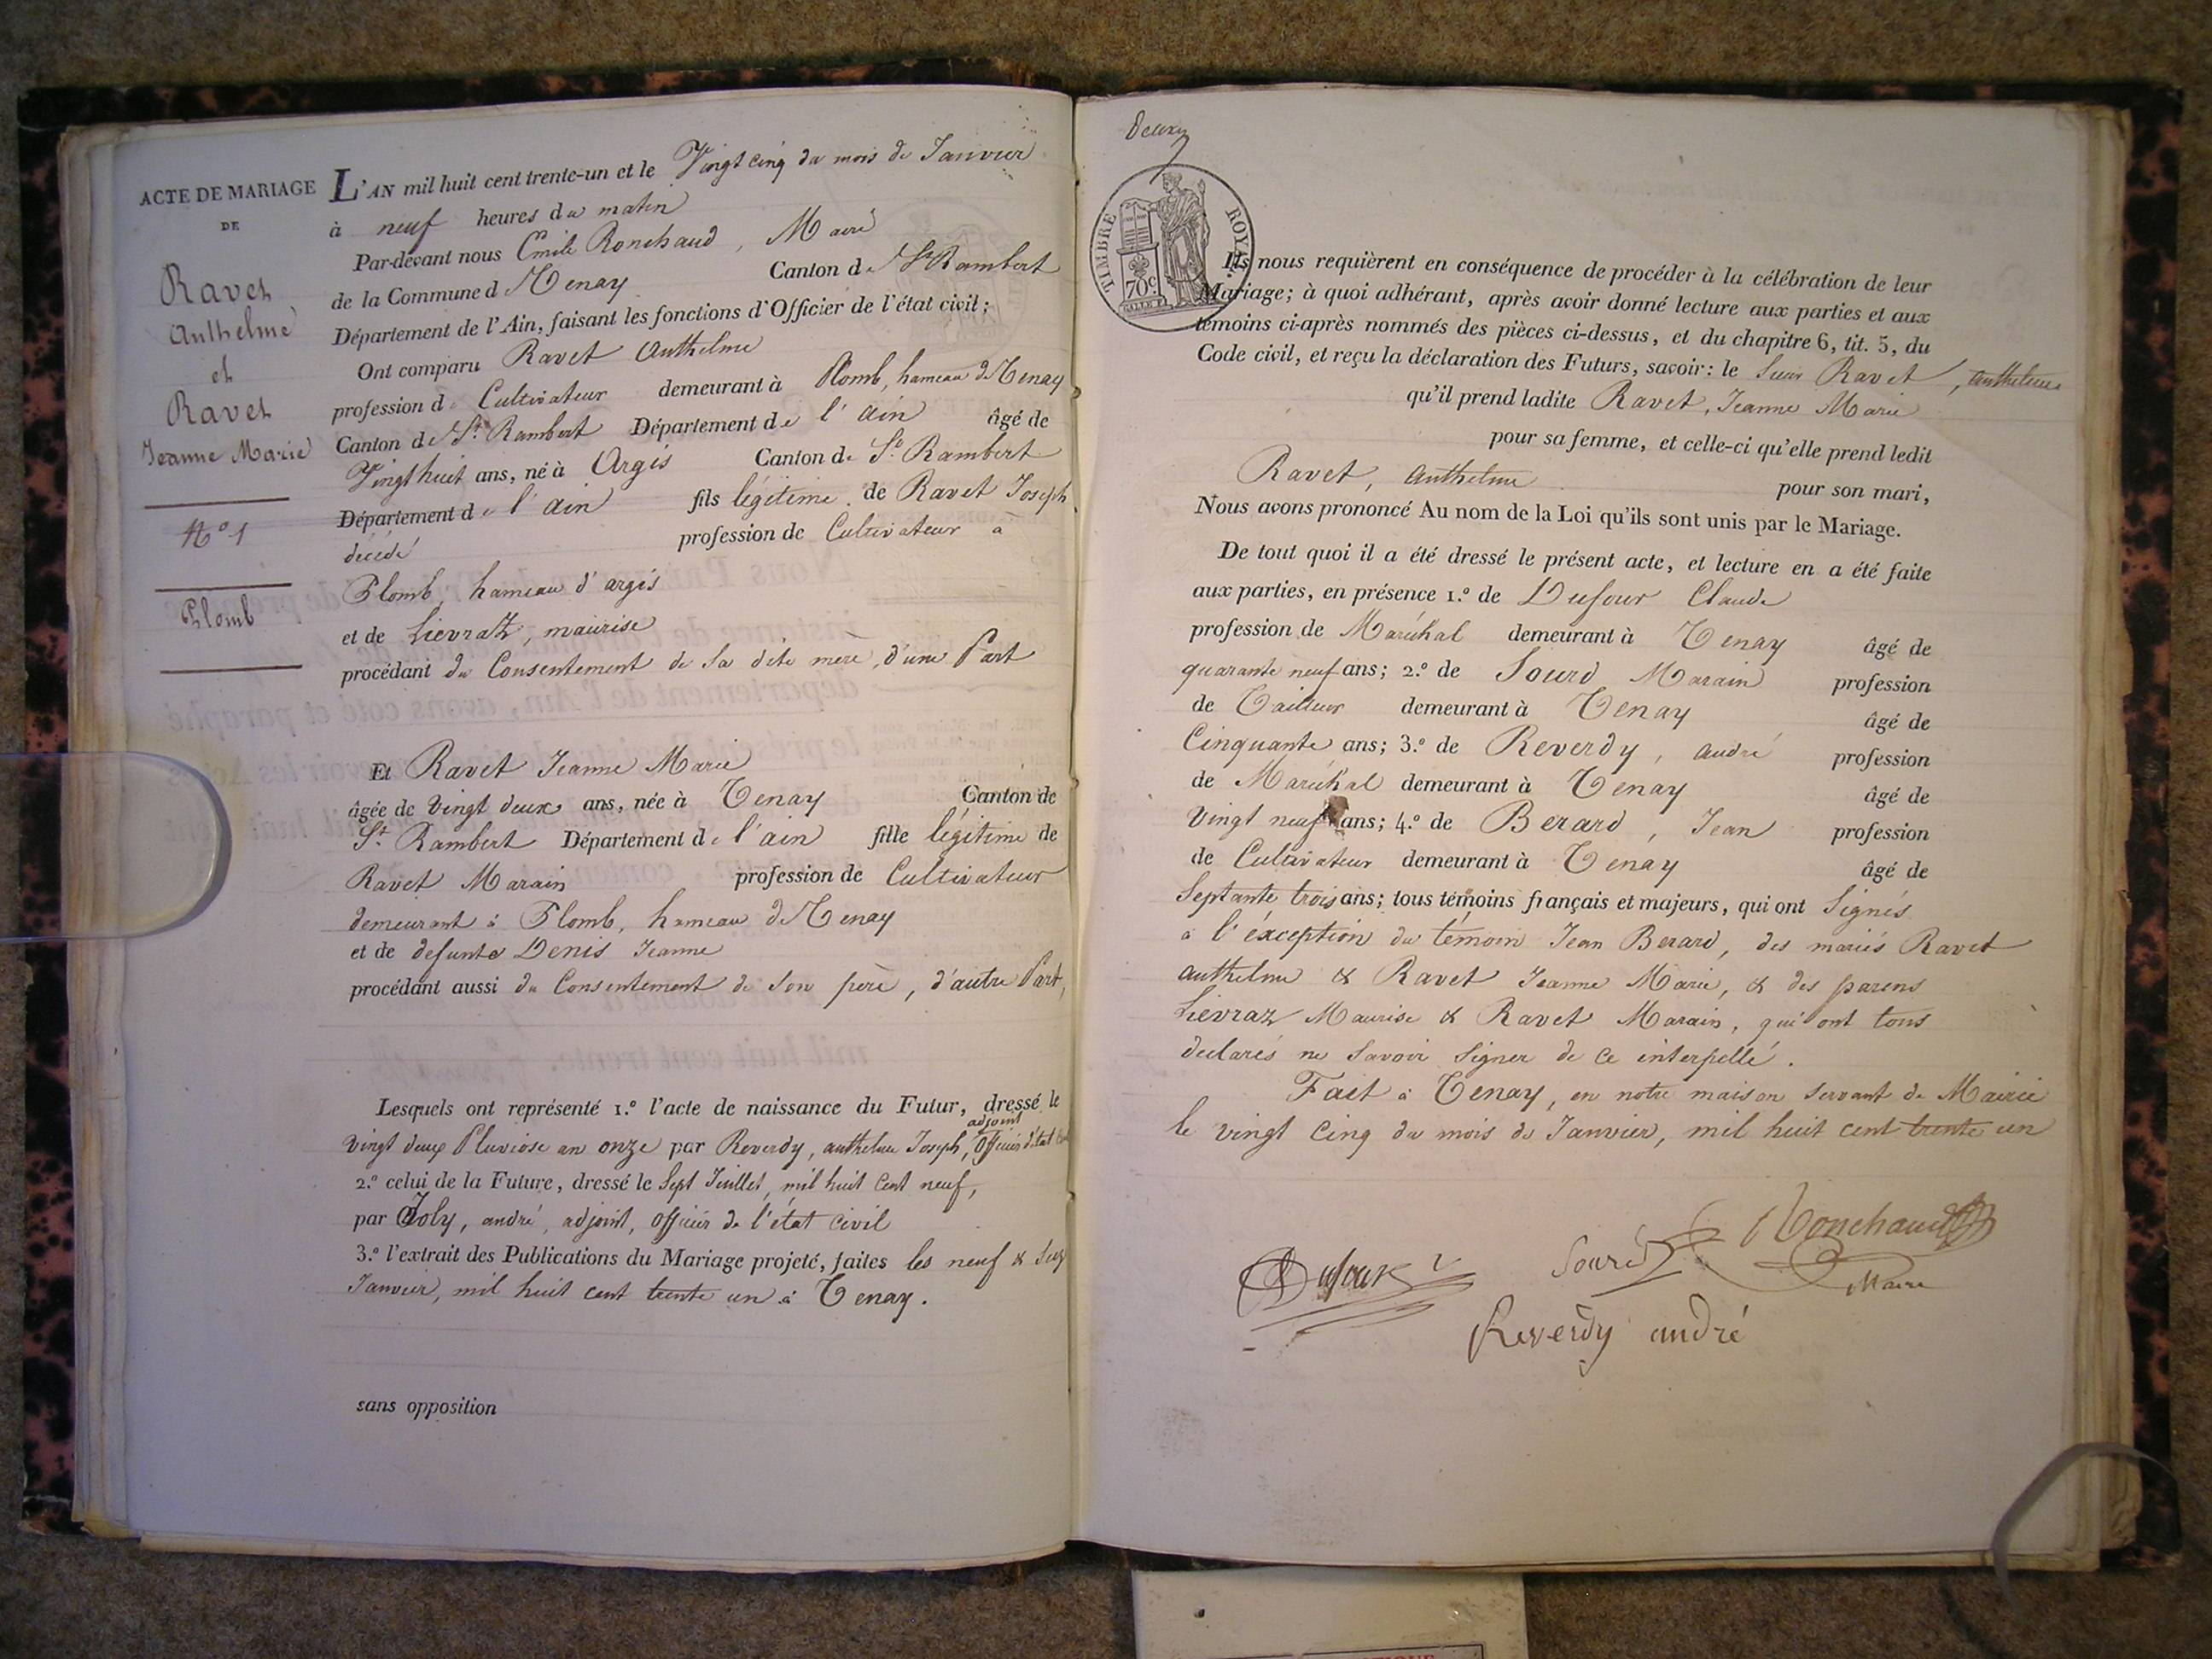 ACTE DE MARIAGE
DE
Ravet
Anthelme
et
Ravet
Jeanne Marie
N° 1
Plomb
L'AN mil huit cent trente-un et le Vingt cinq du mois de Janvier
à neuf heures du matin
Par-devant nous Emile Ronchaud, Maire
de la Commune d Tenay Canton de St Rambert
Département de l'Ain, faisant les fonctions d'Officier de l'état civil;
Ont comparu Ravet Anthelme
profession d Cultivateur demeurant à Plomb, hameau de Tenay
Canton de St Rambert Département de l'ain âgé de
Vingt huit ans, né à Argis Canton de St Rambert
Département de l'ain fils légitime de Ravet Joseph
décédé profession de Cultivateur à
Plomb, hameau d'argis
et de Lievratz, maurise
procédant du Consentement de Sa dite mère, d'une Part
Et Ravet Jeanne Marie
âgée de vingt deux ans, née à Tenay Canton de
St Rambert Département de l'ain fille légitime de
Ravet Marain profession de Cultivateur
demeurant à Plomb, hameau de Tenay
et de defunte Denis Jeanne
procédant aussi du Consentement de Son père, d'autre Part,
Lesquels ont représenté 1.º l'acte de naissance du Futur, dressé le
adjoint
vingt deux Pluviose an onze par Reverdy, anthelme Joseph, Officier d'état
2.º celui de la Future, dressé le Sept Juillet, mil huit Cent neuf,
par Joly, andré, adjoint, Officier de l'état Civil
3.º l'extrait des Publications du Mariage projeté, faites les neuf & Seize
Janvier, mil huit cent trente un à Tenay.
sans opposition
Deux
TIMBRE ROYAL
70c
Ils nous requièrent en conséquence de procéder à la célébration de leur
Mariage; à quoi adhérant, après avoir donné lecture aux parties et aux
témoins ci-après nommés des pièces ci-dessus, et du chapitre 6, tit. 5, du
Code civil, et reçu la déclaration des Futurs, savoir: le Sieur Ravet, anthelme
qu'il prend ladite Ravet, Jeanne Marie
pour sa femme, et celle-ci qu'elle prend ledit
Ravet, Anthelme pour son mari,
Nous avons prononcé Au nom de la Loi qu'ils sont unis par le Mariage.
De tout quoi il a été dressé le présent acte, et lecture en a été faite
aux parties, en présence 1.º de Dufour Claude
profession de Maréchal demeurant à Tenay âgé de
quarante neuf ans; 2.º de Sourd Marain profession
de Tailleur demeurant à Tenay âgé de
Cinquante ans; 3.º de Reverdy, andré profession
de Maréchal demeurant à Tenay âgé de
Vingt neuf ans; 4.º de Berard, Jean profession
de Cultivateur demeurant à Tenay âgé de
Septante trois ans; tous témoins français et majeurs, qui ont Signés
à l'éxception du témoin Jean Berard, des mariés Ravet
anthelme & Ravet Jeanne Marie, & des parens
Lievraz Maurise & Ravet Marain, qui ont tous
declarés ne Savoir Signer de Ce interpellé.
Fait à Tenay, en notre maison Servant de Mairie
le vingt Cinq du mois de Janvier, mil huit cent trente un
Dufour
Sourd
Ronchaud
Maire
Reverdy andré